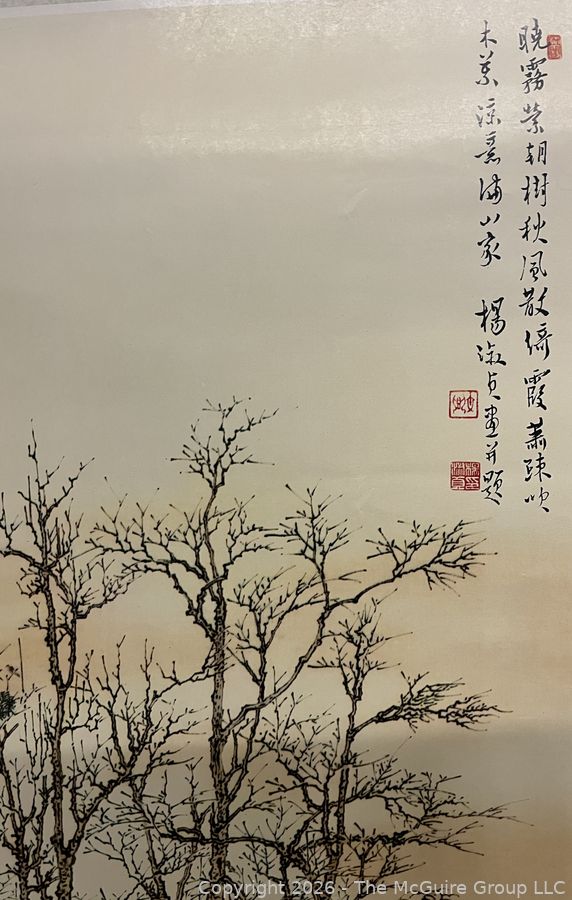 曉霧縈朝樹秋風散綺霞蕭疎吹
木葉涼意滿山家 楊淑貞畫并題
Copyright 2026 - The McGuire Group LLC